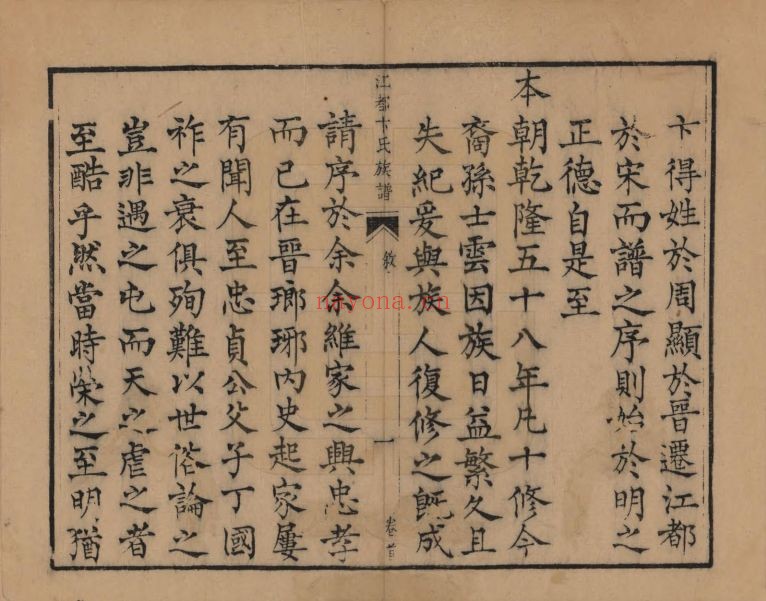 卞得姓於周顯於晉遷江都
於宋而譜之序則始於明之
正德自是至
本朝乾隆五十八年凡十修今
裔孫士雲因族日益繁久且
失紀爰與族人復修之旣成
江都卞氏族譜
敘
一
卷首
請序於余余維家之興忠孝
而已在晉瑯琊內史起家屢
有聞人至忠貞公父子丁國
祚之衰俱殉難以世俗論之
豈非遇之屯而天之虐之者
至酷乎然當時榮之至明猶